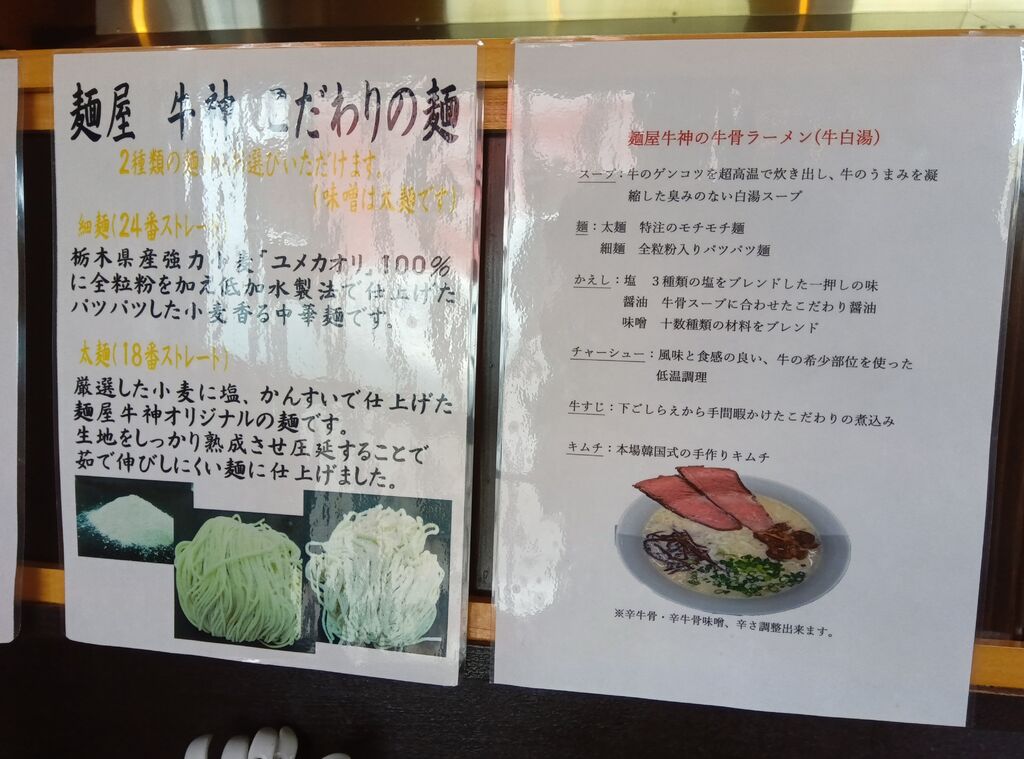 麺屋 牛神 こだわりの麺
2種類の麺からお選びいただけます。
(味噌は太麺です)
細麺(24番ストレート)
栃木県産強力小麦「ユメカオリ」100%
に全粒粉を加え低加水製法で仕上げた
パツパツした小麦香る中華麺です。
太麺(18番ストレート)
厳選した小麦に塩、かんすいで仕上げた
麺屋牛神オリジナルの麺です。
生地をしっかり熟成させ圧延することで
茹で伸びしにくい麺に仕上げました。
麺屋牛神の牛骨ラーメン(牛白湯)
スープ:牛のゲンコツを超高温で炊き出し、牛のうまみを凝
縮した臭みのない白湯スープ
麺:太麺 特注のモチモチ麺
細麺 全粒粉入りパツパツ麺
かえし:塩 3種類の塩をブレンドした一押しの味
醤油 牛骨スープに合わせたこだわり醤油
味噌 十数種類の材料をブレンド
チャーシュー:風味と食感の良い、牛の希少部位を使った
低温調理
牛すじ:下ごしらえから手間暇かけたこだわりの煮込み
キムチ:本場韓国式の手作りキムチ
※辛牛骨・辛牛骨味噌、辛さ調整出来ます。